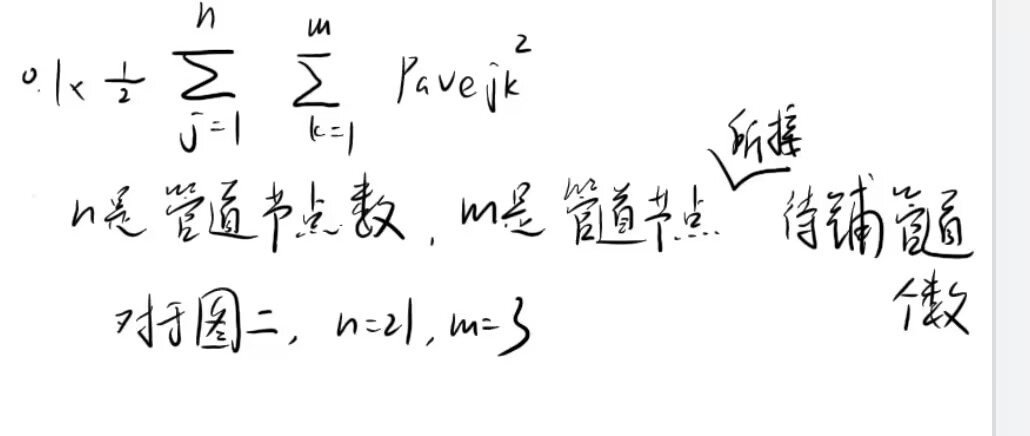 0.1× 1/2 ∑_{j=1}^{n} ∑_{k=1}^{m} Pavejk²
n是管道节点数, m是管道节点所接待铺管道
个数
对于图二, n=21, m=3